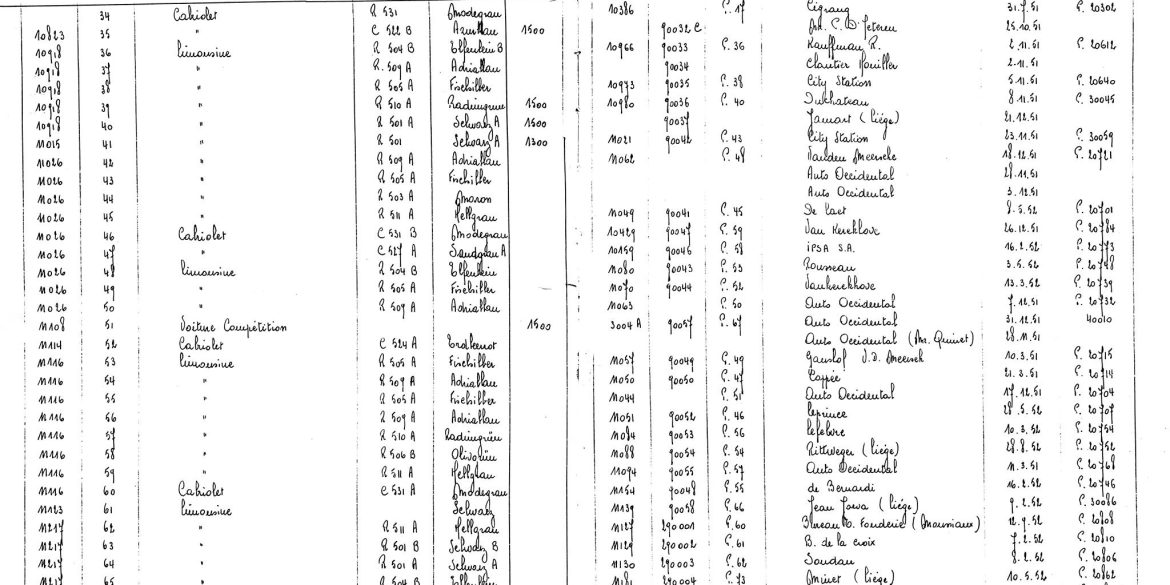 34 Cabriolet R 531 Modegrau 10386 C. 17 Cigrang 31.7.51 C. 20302
10823 35 " C 522 B Azurblau 1500 90032 C 25.10.51
10918 36 Limousine R 504 B Elfenbein B 10966 90033 C. 36 Kauffman R. 2.11.51 C. 20612
10918 37 " R 509 A Adriablau 90034 2.11.51
10918 38 " R 505 A Fischsilber 10973 90035 C. 38 City Station 5.11.51 C. 20640
10918 39 " R 510 A Radiumgrün 1500 10980 90036 C. 40 Duchateau 8.11.51 C. 30045
10918 40 " R 501 A Schwarz A 1500 90037 Jamart (Liège) 21.12.51
11015 41 " R 501 Schwarz A 1300 11021 90042 C. 43 City Station 23.11.51 C. 30059
11026 42 " R 509 A Adriablau 11062 C. 48 Vanden Meersche 18.12.51 C. 20721
11026 43 " R 505 A Fischsilber Auto Occidental 28.11.51
11026 44 " R 503 A Maron Auto Occidental 3.12.51
11026 45 " R 511 A Hellgrau 11049 90041 C. 45 De Caet 8.5.52 C. 20701
11026 46 Cabriolet C 531 B Modegrau 10429 90047 C. 59 Van Kerckhove 26.12.51 C. 20784
11026 47 " C 527 A Sandgrau A 10159 90046 C. 58 IPSA S.A. 16.2.52 C. 20773
11026 48 Limousine R 504 B Elfenbein 11080 90043 C. 53 Rousseau 3.5.52 C. 20748
11026 49 " R 505 A Fischsilber 11070 90044 C. 52 Vankerckhove 13.3.52 C. 20739
11026 50 " R 509 A Adriablau 11063 C. 50 Auto Occidental 7.12.51 C. 20732
11108 51 Voiture Compétition 1500 3004 A 90057 C. 67 Auto Occidental 31.12.51 40010
11114 52 Cabriolet C 524 A Erdbeerrot Auto Occidental (Mr. Quinet) 28.11.51
11116 53 Limousine R 505 A Fischsilber 11057 90049 C. 49 V.D. Meersch 10.3.51 C. 20715
11116 54 " R 509 A Adriablau 11050 90050 C. 47 Coppée 21.3.51 C. 20714
11116 55 " R 505 A Fischsilber 11044 C. 51 Auto Occidental 17.12.51 C. 20704
11116 56 " R 509 A Adriablau 11051 90052 C. 46 Leprince 28.5.52 C. 20707
11116 57 " R 510 A Radiumgrün 11084 90053 C. 56 Lefebvre 10.3.52 C. 20754
11116 58 " R 506 B Olivgrün 11088 90054 C. 54 Rittweger (Liège) 28.8.52 C. 20752
11116 59 " R 511 A Hellgrau 11094 90055 C. 57 Auto Occidental 11.3.51 C. 20768
11116 60 Cabriolet C 531 A Modegrau 11154 90048 C. 55 de Bernardi 16.2.52 C. 20746
11123 61 Limousine Schwarz 11139 90058 C. 66 Jean Jowa (Liège) 9.2.52 C. 30086
11217 62 " R 511 A Hellgrau 11127 290001 C. 60 Bureau D. Fonderie 12.9.52 C. 20808
11217 63 " R 501 B Schwarz B 11129 290002 C. 61 B. de la croix 7.2.52 C. 20810
11217 64 " R 501 A Schwarz A 11130 290003 C. 62 Soudan 8.2.52 C. 20806
11217 65 R 504 B Elfenbein 11181 290004 C. 73 (Liège) 10.5.52 C. 20862